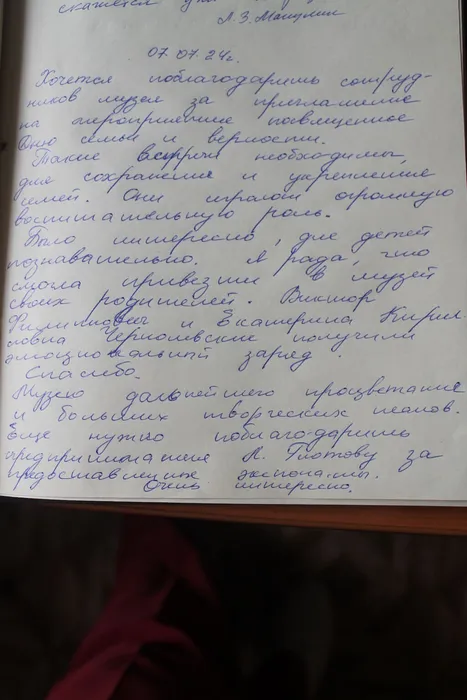 скажется
Л.З. Мануили
07.07.24г.
Хочется поблагодарить сотруд-
ников музея за приглашение
на мероприятие посвященное
Дню семьи и верности.
Такие встречи необходимы,
для сохранения и укрепления
семей. Они играют огромную
воспитательную роль.
Было интересно, для детей
познавательно. Я рада, что
смогла привезти в музей
своих родителей. Виктор
Филиппович и Екатерина Кирил-
ловна Чернявские получили
эмоциональный заряд.
Спасибо.
Музею дальнейшего процветания
и больших творческих планов.
Еще нужно поблагодарить
предпринимателя Л. Глотову за
предоставленные экспонаты.
Очень интересно.